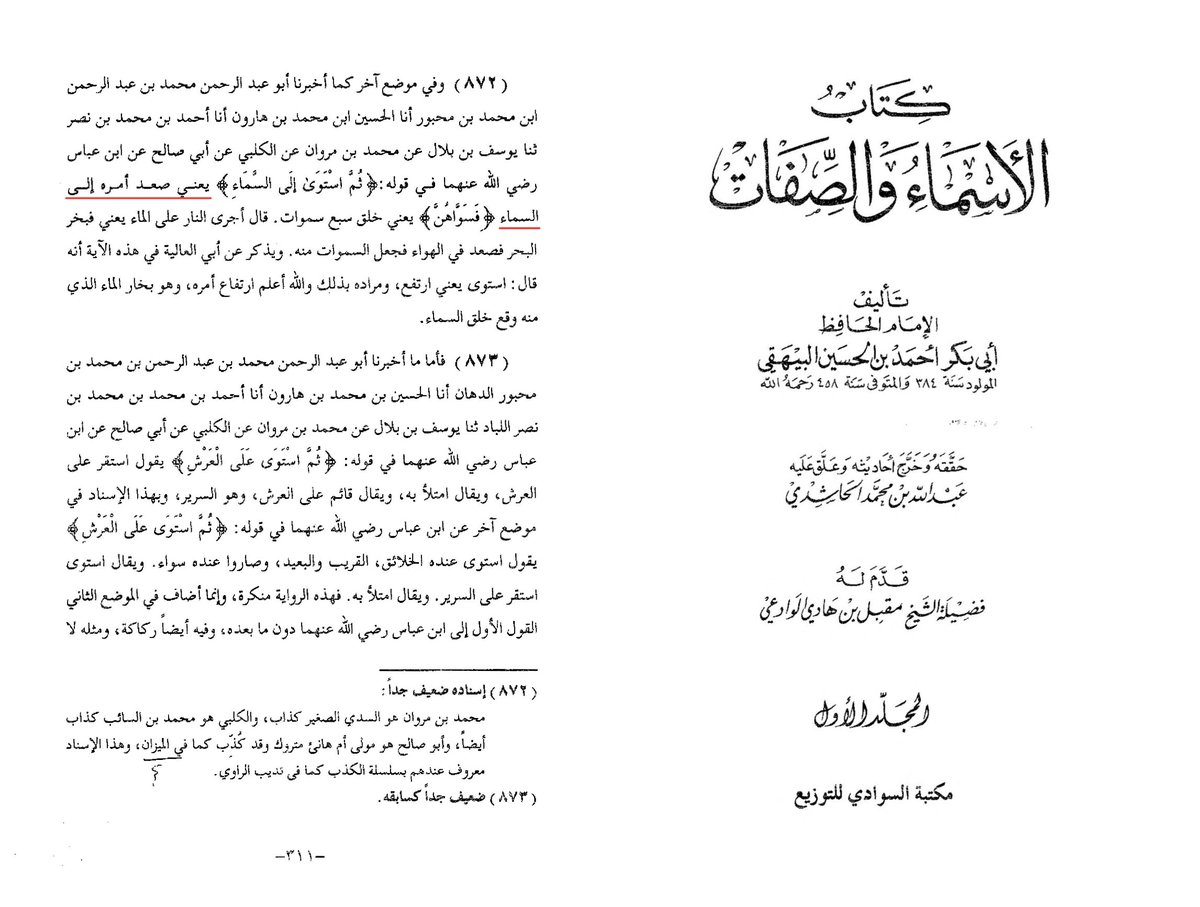 كِتَابُ
الأَسْمَاءُ وَالصِّفَاتُ
تَأليفْ
الإمَام الحَافِظ
أبي بَكر أحمَد بن الحسَين البيهَقي
المولود سَنة ٣٨٤ وَالمتوفى سَنة ٤٥٨ رَحمَهُ الله
حَقَّقَهُ وَخَرَّجَ أحَاديثه وَعَلَّق عَليه
عَبد الله بن محمَّد الحَاشِدي
قَدَّمَ لَهُ
فضيلة الشيخ مقبل بن هَادي الوادعي
المجَلّد الأول
مكتبة السوادي للتوزيع
(٨٧٢) وفي موضع آخر كما أخبرنا أبو عبد الرحمن محمد بن عبد الرحمن
ابن محمد بن محبور أنا الحسين ابن محمد بن هارون أنا أحمد بن محمد بن نصر
ثنا يوسف بن بلال عن محمد بن مروان عن الكلبي عن أبي صالح عن ابن عباس
رضي الله عنهما في قوله: ﴿ثُمَّ اسْتَوَىٰ إِلَى السَّمَاءِ﴾ يعني صعد أمره إلى
السماء ﴿فَسَوَّاهُنَّ﴾ يعني خلق سبع سموات. قال أجرى النار على الماء يعني فبخر
البحر فصعد في الهواء فجعل السموات منه. ويذكر عن أبي العالية في هذه الآية أنه
قال: استوى يعني ارتفع، ومراده بذلك والله أعلم ارتفاع أمره، وهو بخار الماء الذي
منه وقع خلق السماء.
(٨٧٣) فأما ما أخبرنا أبو عبد الرحمن محمد بن عبد الرحمن بن محمد بن
محبور الدهان أنا الحسين بن محمد بن هارون أنا أحمد بن محمد بن محمد بن
نصر اللباد ثنا يوسف بن بلال عن محمد بن مروان عن الكلبي عن أبي صالح عن ابن
عباس رضي الله عنهما في قوله: ﴿ثُمَّ اسْتَوَى عَلَى الْعَرْشِ﴾ يقول استقر على
العرش، ويقال امتلأ به، ويقال قائم على العرش، وهو السرير، وبهذا الإسناد في
موضع آخر عن ابن عباس رضي الله عنهما في قوله: ﴿ثُمَّ اسْتَوَى عَلَى الْعَرْشِ﴾
يقول استوى عنده الخلائق، القريب والبعيد، وصاروا عنده سواء. ويقال استوى
استقر على السرير. ويقال امتلأ به. فهذه الرواية منكرة، وإنما أضاف في الموضع الثاني
القول الأول إلى ابن عباس رضي الله عنهما دون ما بعده، وفيه أيضاً ركاكة، ومثله لا
(٨٧٢) إسناده ضعيف جداً:
محمد بن مروان هو السدي الصغير كذاب، والكلبي هو محمد بن السائب كذاب
أيضاً، وأبو صالح هو مولى أم هانئ متروك وقد كُذّب كما في الميزان، وهذا الإسناد
معروف عندهم بسلسلة الكذب كما في تديب الراوي.
(٨٧٣) ضعيف جداً كسابقه.
–٣١١–